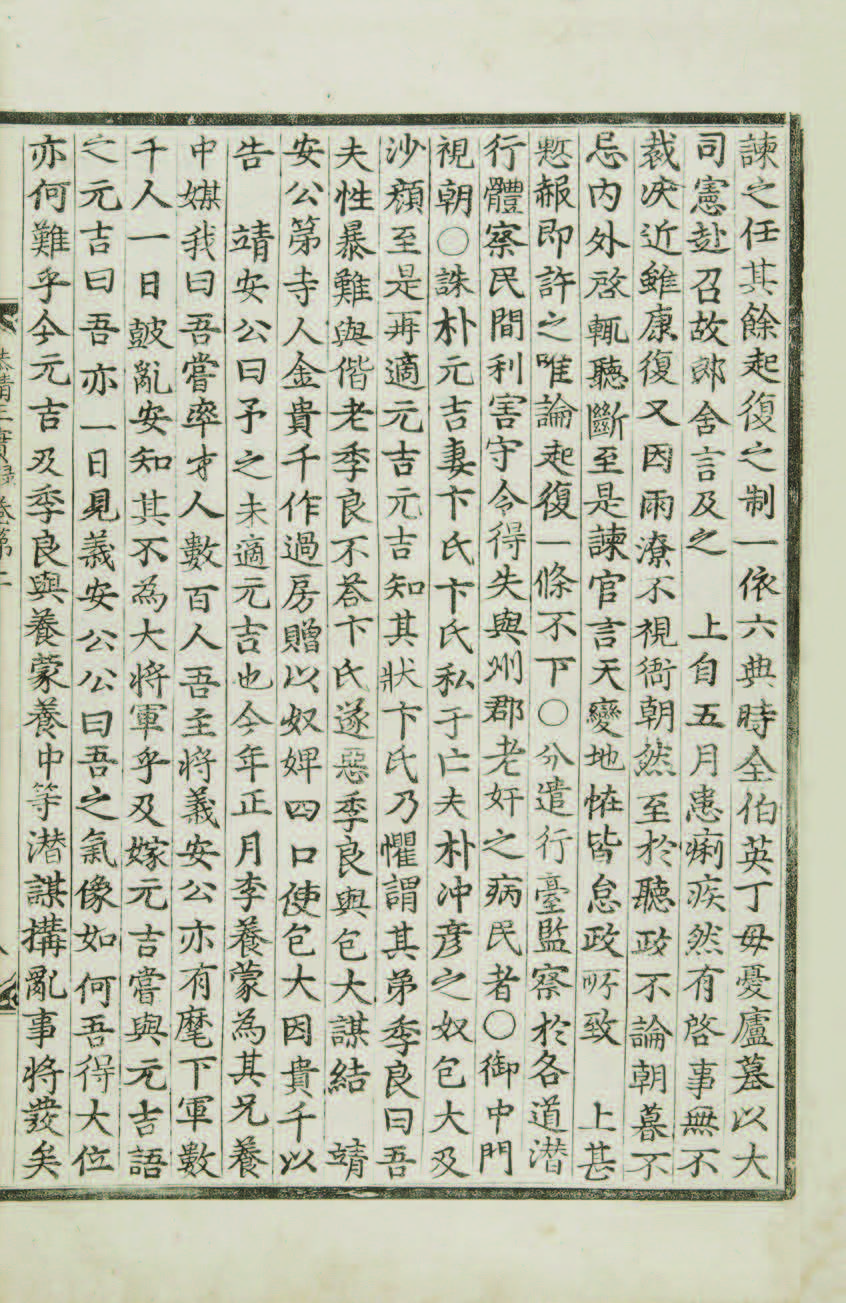 諫之任其餘起復之制一依六典時全伯英丁母憂廬墓以大
司憲赴召故郞舍言及之 上自五月患痢疾然有啓事無不
裁決近雖康復又因雨潦不視衙朝然至於聽政不論朝暮不
忌內外啓輒聽斷至是諫官言天變地恠皆怠政所致 上甚
慙赧即許之唯論起復一條不下○分遣行臺監察於各道潜
行體察民間利害守令得失與州郡老奸之病民者○御中門
視朝○誅朴元吉妻卞氏卞氏私于亡夫朴冲彦之奴包大及
沙顔至是再適元吉元吉知其狀卞氏乃懼謂其弟季良曰吾
夫性暴難與偕老季良不荅卞氏遂惡季良與包大謀結 靖
安公第寺人金貴千作過房贈以奴婢四口使包大因貴千以
告 靖安公曰予之未適元吉也今年正月李養蒙為其兄養
中媒我曰吾嘗率才人數百人吾主將義安公亦有麾下軍數
千人一日皷亂安知其不為大將軍乎及嫁元吉嘗與元吉語
之元吉曰吾亦一日見義安公公曰吾之氣像如何吾得大位
亦何難乎今元吉及季良與養蒙養中等潜謀搆亂事將發矣
恭靖王實錄卷第二
八